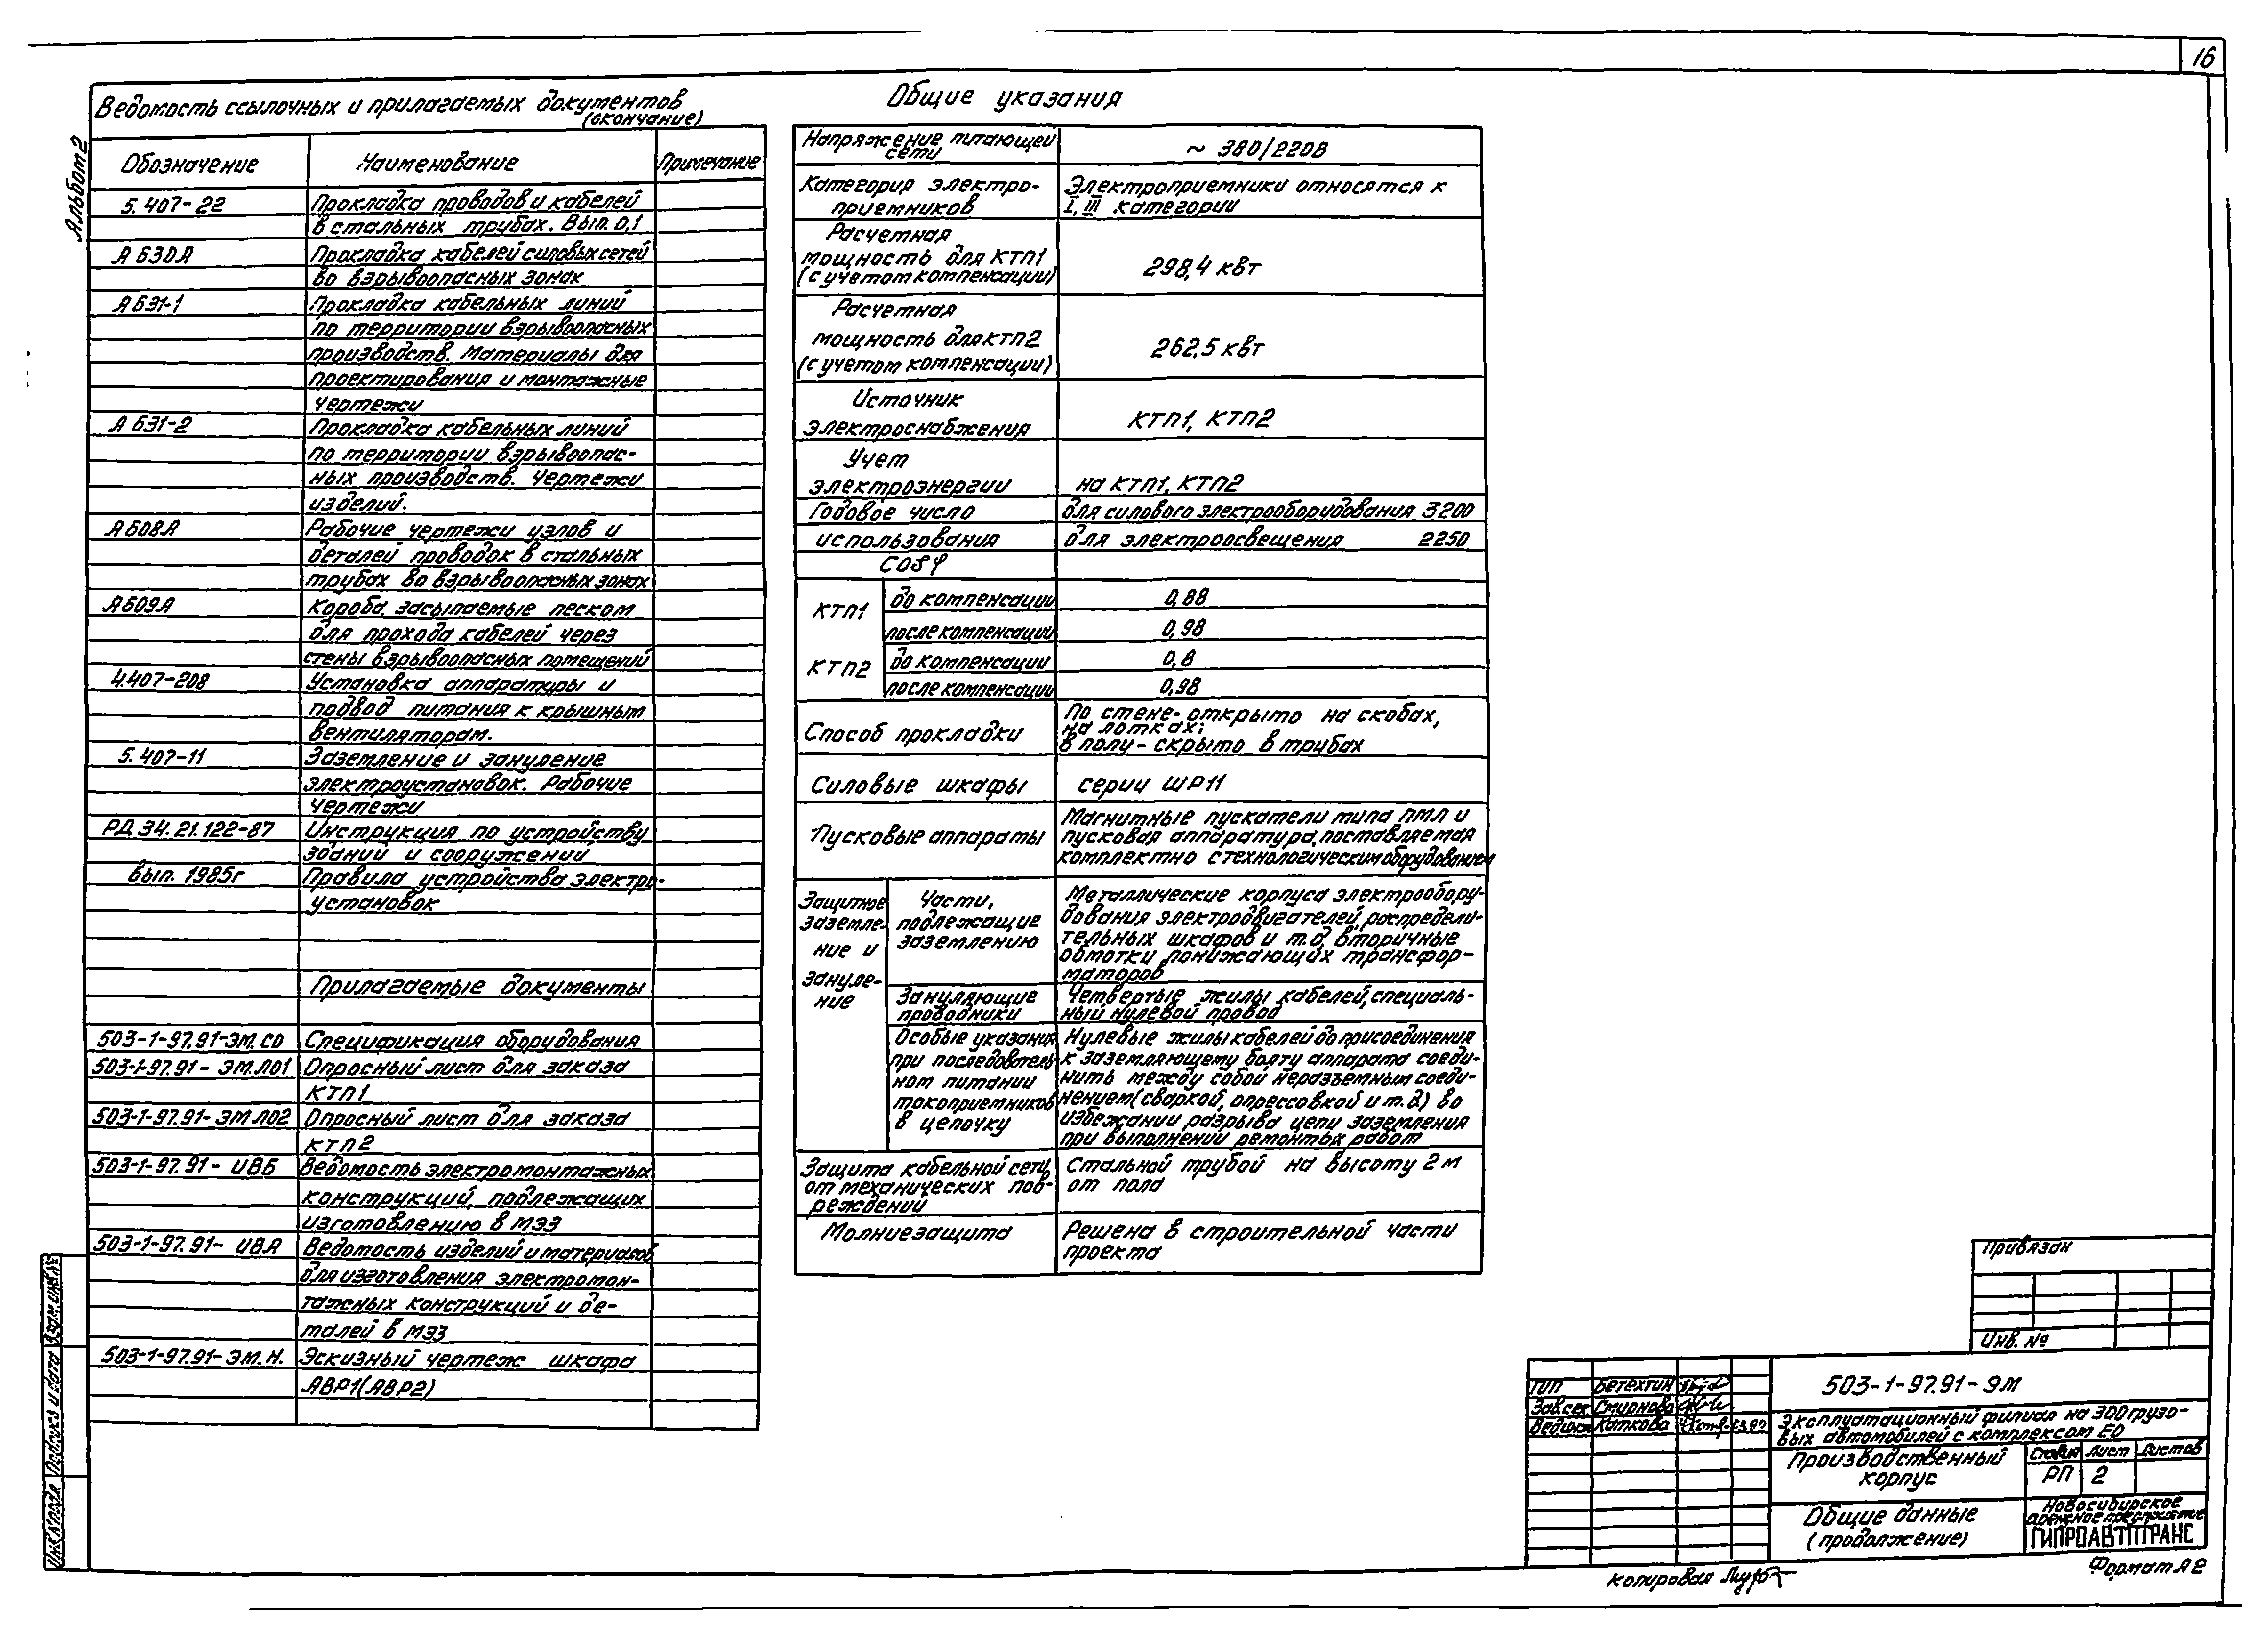 16
Альбом 2
Ведомость ссылочных и прилагаемых документов
(окончание)
Обозначение Наименование Примечание
5.407-22 Прокладка проводов и кабелей
в стальных трубах. Вып. 0,1
А 630А Прокладка кабелей силовых сетей
во взрывоопасных зонах
А 631-1 Прокладка кабельных линий
по территории взрывоопасных
производств. Материалы для
проектирования и монтажные
чертежи
А 631-2 Прокладка кабельных линий
по территории взрывоопас-
ных производств. Чертежи
изделий.
А608А Рабочие чертежи узлов и
деталей проводок в стальных
трубах во взрывоопасных зонах
А609А Короба, засыпаемые песком
для прохода кабелей через
стены взрывоопасных помещений
4.407-208 Установка аппаратуры и
подвод питания к крышным
вентиляторам.
5.407-11 Заземление и зануление
электроустановок. Рабочие
чертежи
РД 34.21.122-87 Инструкция по устройству
зданий и сооружений
вып. 1985г Правила устройства электро-
установок
Прилагаемые документы
503-1-97.91-ЭМ.СО Спецификация оборудования
503-1-97.91-ЭМ.Л01 Опросный лист для заказа
КТП1
503-1-97.91-ЭМ Л02 Опросный лист для заказа
КТП2
503-1-97.91- ИВБ Ведомость электромонтажных
конструкций, подлежащих
изготовлению в МЭЗ
503-1-97.91- ИВА Ведомость изделий и материалов
для изготовления электромон-
тажных конструкций и де-
талей в МЭЗ
503-1-97.91-ЭМ.Н. Эскизный чертеж шкафа
АВР1(АВР2)
Общие указания
Напряжение питающей
сети
~ 380/220В
Категория электро-
приемников
Электроприемники относятся к
I, III категории
Расчетная
мощность для КТП1
(с учетом компенсации)
298,4 кВт
Расчетная
мощность для КТП2
(с учетом компенсации)
262,5 кВт
Источник
электроснабжения
КТП1, КТП2
Учет
электроэнергии
на КТП1, КТП2
Годовое число для силового электрооборудования 3200
использования для электроосвещения 2250
COSφ
КТП1 до компенсации 0,88
после компенсации 0,98
КТП2 до компенсации 0,8
после компенсации 0,98
Способ прокладки
По стене- открыто на скобах,
на лотках;
в полу - скрыто в трубах
Силовые шкафы серии ШР11
Пусковые аппараты
Магнитные пускатели типа ПМЛ и
пусковая аппаратура, поставляемая
комплектно с технологическим оборудованием
Защитное
заземле-
ние и
зануле-
ние
Части,
подлежащие
заземлению
Металлические корпуса электрообору-
дования электродвигателей, распредели-
тельных шкафов и т.д, вторичные
обмотки понижающих трансфор-
маторов
Зануляющие
проводники
Четвертые жилы кабелей, специаль-
ный нулевой провод
Особые указания
при последователь
ном питании
токоприемников
в цепочку
Нулевые жилы кабелей до присоединения
к заземляющему болту аппарата соеди-
нить между собой неразъемным соеди-
нением (сваркой, опрессовкой и т.д) во
избежании разрыва цепи заземления
при выполнении ремонтых работ
Защита кабельной сети
от механических пов-
реждений
Стальной трубой на высоту 2м
от пола
Молниезащита
Решена в строительной части
проекта
Привязан
Инв. №
ГИП Бетехтин
Зав.сек Смирнова
Вединж Каткова
503-1-97.91-ЭМ
Эксплуатационный филиал на 300 грузо-
вых автомобилей с комплексом ЕО
Производственный
корпус
Стадия Лист Листов
РП 2
Общие данные
(продолжение)
Новосибирское
арендное предприятие
ГИПРОАВТОТРАНС
Копировал
Формат А2
Взам. инв. №
Подпись и дата
Инв. № подл